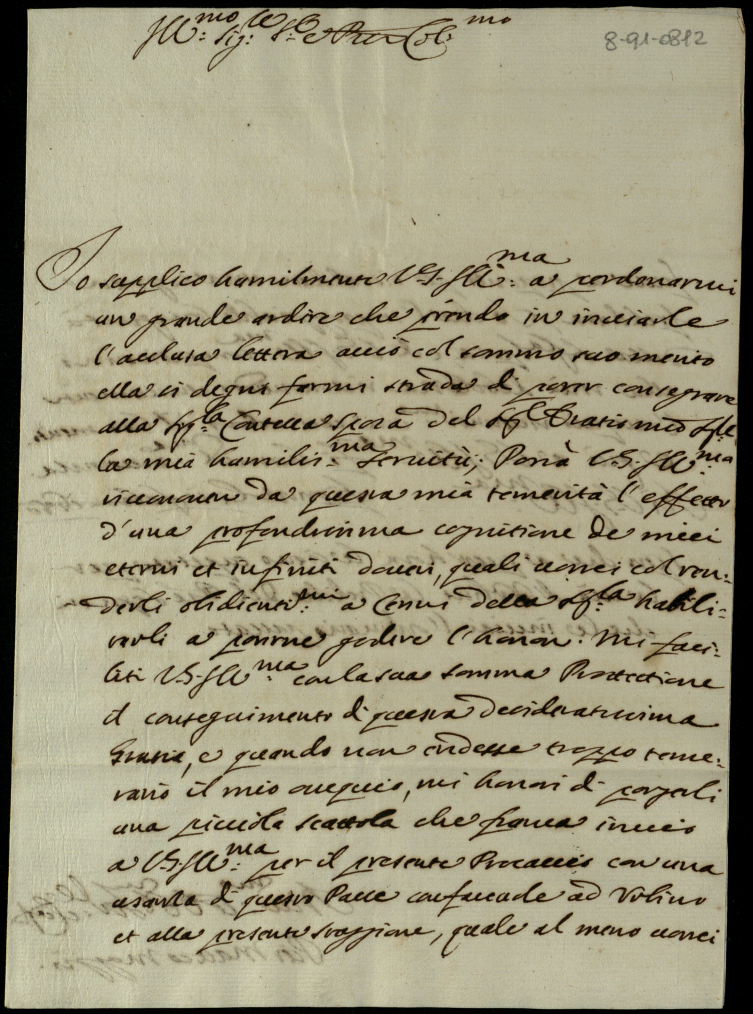 Ill:mo Sig:re S:re e Pron Col:mo
8-91-0812
Io supplico humilmente V.S. Ill:ma a perdonarmi
un grande ardire che prendo in inviarle
l'acclusa lettera acciò col sommo suo merito
ella si degni farmi strada di poter consegrare
alla Sig:la Contessa Sposa del Sig:e
la mia humilis:ma Servitù; Porrà V.S. Ill:ma
riconoscer da questa mia temerità l'effetto
d'una profondissima cognitione de miei
eterni et infiniti doveri, quali vorrei col ren:
derli obidienti:mi a Cenni della Sig:la habili:
tarli a poterne godere l'honor. Mi faci:
liti V.S. Ill:ma con la sua somma Protettione
il conseguimento di questa desideratissima
Gratia, e quando non credesse troppo teme:
rario il mio ossequio, mi honori di porgerli
una piccola scattola che franca invio
a V.S. Ill:ma per il presente Procaccio con una
usanza di questo Paese confaccede ad Volino
et alla presente staggione, quale al meno vorrei